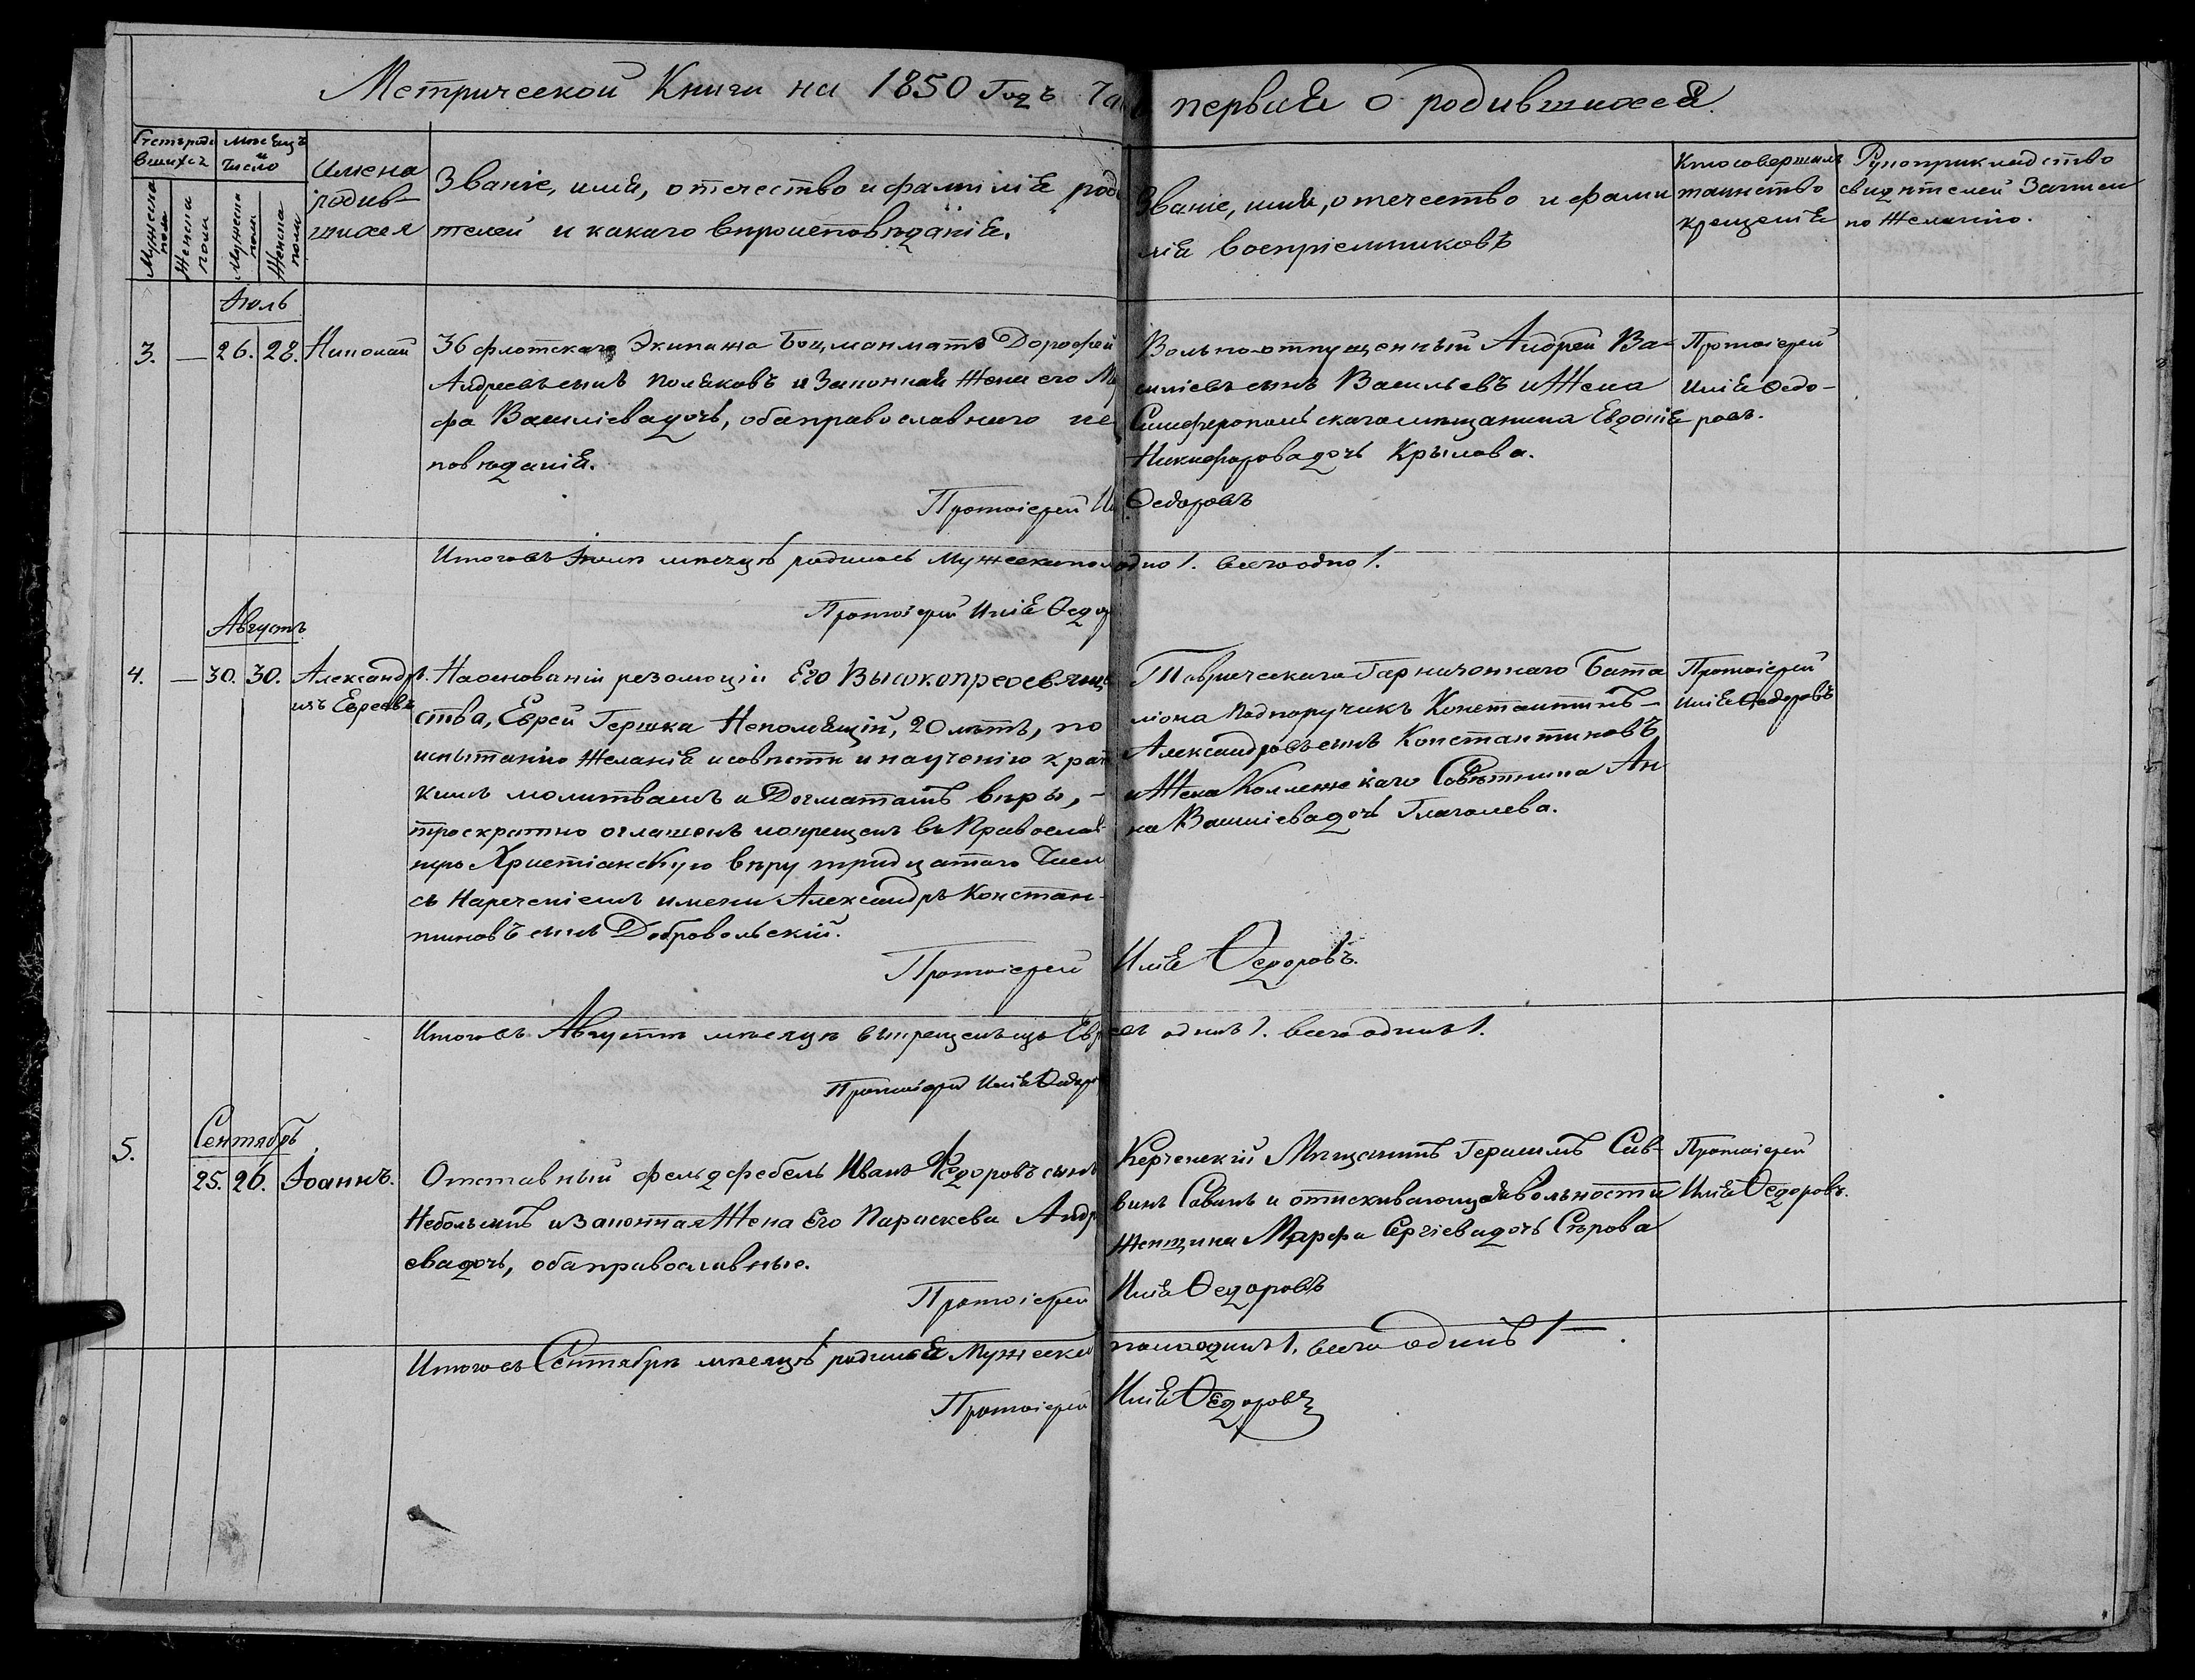 Метрической Книги на 1850 Годъ Ча первая о родившихся.
Счетъ роди
вшихся
Мѣсяцъ
и
число
Мужеска
пола
Женска
пола
Мужеска
пола
Женска
пола
Имена
родив-
шихся
Званіе, имя, отечество и фамилія роди
телей и какаго вѣроисповѣданія.
Званіе, имя, отечество и фами
лія воспріемниковъ
Кто совершилъ
таинство
крещенія
Рукоприкладство
свидѣтелей записи
по желанію.
Іюль
3. — 26. 28. Николай
36 флотскаго Экипажа Боцманматъ Дорофей
Андреевъ сынъ Поляковъ и Законная Жена его Ма
фа Васильева дочь, оба православнаго ис
повѣданія.
Вольноотпущенный Андрей Ва-
силіевъ сынъ Васильевъ и Жена
Симферопольскаго мѣщанина Евдокія
Никифорова дочь Крылова.
Протоіерей
Илія Ѳедо-
ровъ.
Протоіерей И Ѳедоровъ
Итого въ Іюлѣ мѣсяцѣ родилось Мужеска пола одно 1. всего одно 1.
Протоіерей Илія Ѳедор
Августъ
4. — 30. 30. Александръ
изъ Евреевъ
На основаніи резолюціи Его Высокопреосвящен
ства, Еврей Гершка Непомящій, 20 лѣтъ, по
испытанію желанія и совѣсти и наученію крат
кимъ молитвамъ и Догматамъ вѣры, -
троекратно оглашенъ и окрещенъ въ Православ
ную Христіанскую вѣру тридцатаго Числ
съ Нареченіемъ имени Александръ Констан-
тиновъ сынъ Добровольскій.
Таврическаго Гарнизоннаго Бата
ліона Подпоручикъ Константинъ -
Александровъ сынъ Константиновъ
и Жена Коллежскаго Совѣтника Ан
на Васильева дочь Глаголева.
Протоіерей
Илія Ѳедоровъ
Протоіерей Илія Ѳедоровъ.
Итого въ Августѣ мѣсяцѣ окрещенъ изъ Евреевъ одинъ 1. всего одинъ 1.
Протоіерей Илія Ѳедоро
Сентябрь
5. 25. 26. Іоаннъ.
Отставный фельдфебель Иванъ Ѳедоровъ сынъ
Небольсинъ и Законная Жена Его Параскева Андр
ева дочь, оба православные.
Керченскій Мѣщанинъ Герасимъ Сав-
винъ Савинъ и отыскивающая вольности
женщина Марфа Сергіева дочь Сѣрова
Протоіерей
Илія Ѳедоровъ.
Протоіерей Илія Ѳедоровъ
Итого въ Сентябрѣ мѣсяцѣ родился Мужеска пола одинъ 1. всего одинъ 1 —.
Протоіерей Илія Ѳедоровъ